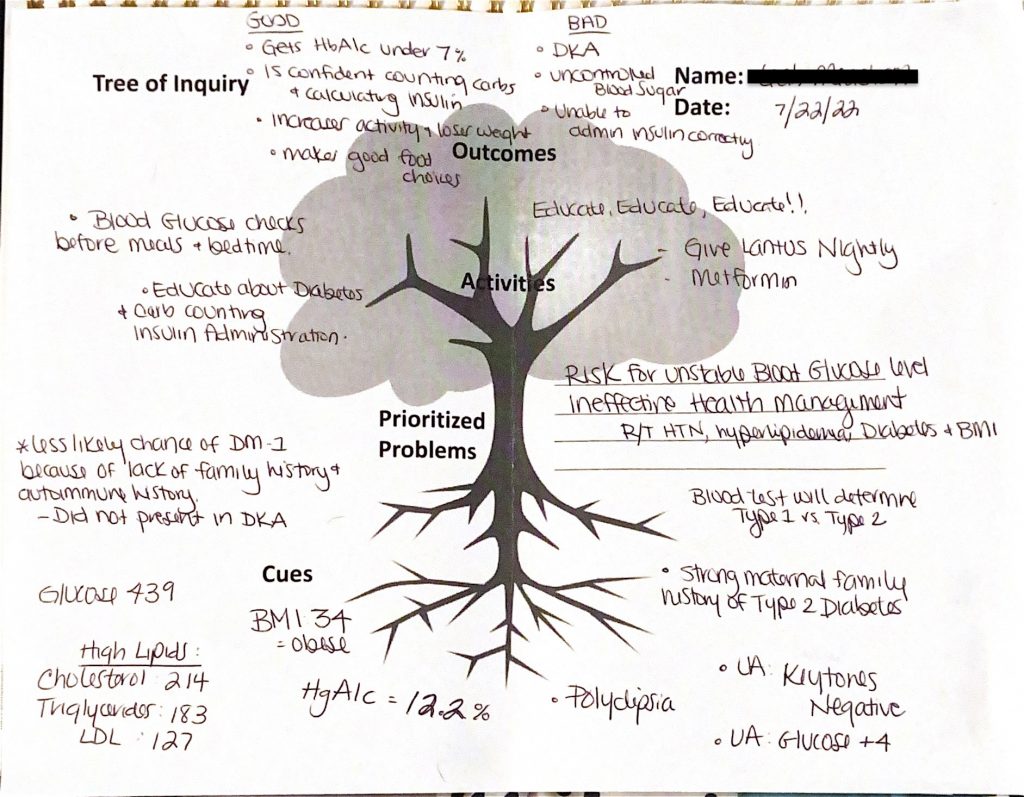 GOOD
• Gets HbA1c under 7%
• Is confident counting carbs
+ calculating insulin
• increases activity + loses weight
• makes good food
choices
BAD
• DKA
• uncontrolled
Blood Sugar
• Unable to
admin insulin correctly
Tree of Inquiry
Name:
Date: 7/22/22
Outcomes
• Blood Glucose checks
before meals + bedtime.
• Educate about Diabetes
+ Carb counting
Insulin Administration.
Educate, Educate, Educate!!
- Give Lantus Nightly
- Metformin
Activities
Prioritized
Problems
Risk for unstable Bloot Glucose level
Ineffective Health Management
R/T HTN, hyperlipidemia, Diabetes + BMI
*less likely chance of DM-1
because of lack of family history +
autoimmune history.
- Did not present in DKA
Blood test will determine
Type 1 vs. Type 2
Cues
Glucose 439
BMI 34
= obese
High Lipids:
Cholesterol: 214
Triglycerides: 183
LDL: 127
HgA1c = 12.2%
• Polydipsia
• Strong maternal family
history of Type 2 Diabetes
• UA: Keytones
Negative
• UA: Glucose +4